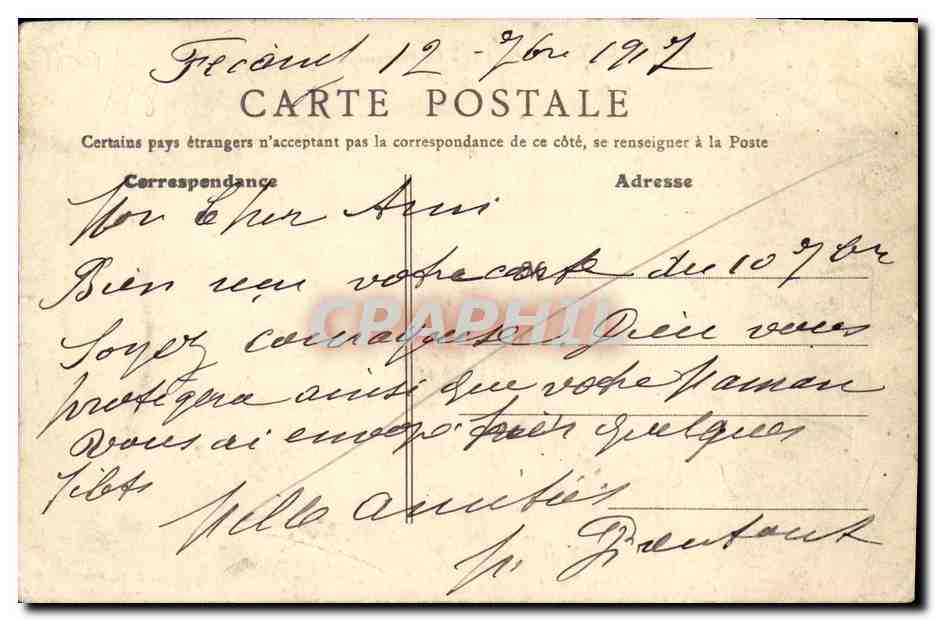 Fécamp 12 - 7bre 1917
CARTE POSTALE
Certains pays étrangers n'acceptent pas la correspondance de ce côté, se renseigner à la Poste
Correspondance
Adresse
Mon Cher Ami
Bien reçu votre carte du 10 7bre
CPAPHIL
Soyez courageuse. Dieu vous
protégera ainsi que votre Maman
Vous ai envoyé hier quelques
Mille amitiés